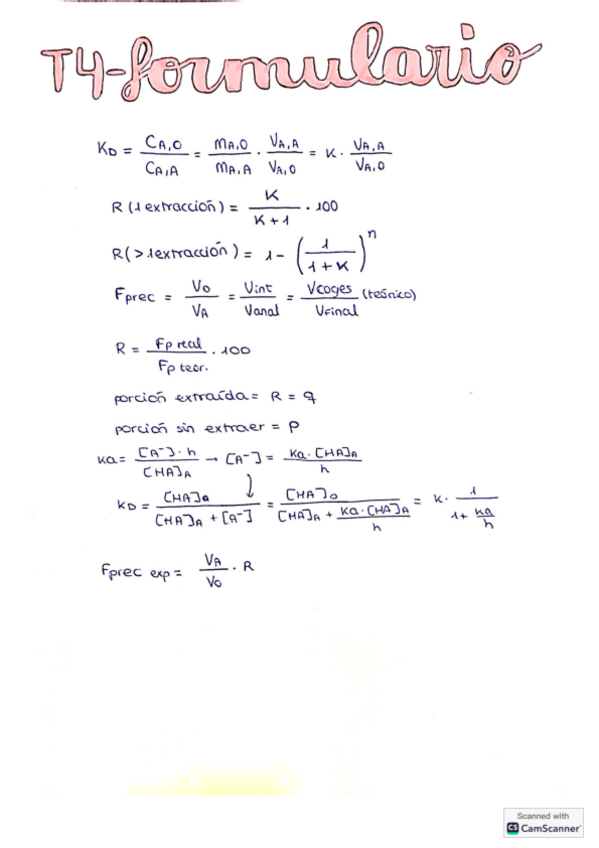 T4-formulario
K_D = C_{A,O} / C_{A,A} = m_{A,O} / m_{A,A} · V_{A,A} / V_{A,O} = K · V_{A,A} / V_{A,O}
R (1 extracción) = K / (K + 1) · 100
R (>1 extracción) = 1 - (1 / (1 + K))^n
Fprec = V_O / V_A = Vint / Vanal = Vcoges / Vfinal (teórico)
R = Fp real / Fp teor. · 100
porción extraída = R = q
porción sin extraer = P
Ka = [A⁻] · h / [HA]_A → [A⁻] = Ka · [HA]_A / h
K_D = [HA]_O / ([HA]_A + [A⁻]) = [HA]_O / ([HA]_A + Ka · [HA]_A / h) = K · 1 / (1 + Ka / h)
Fprec exp = V_A / V_O · R
Scanned with
CS CamScanner